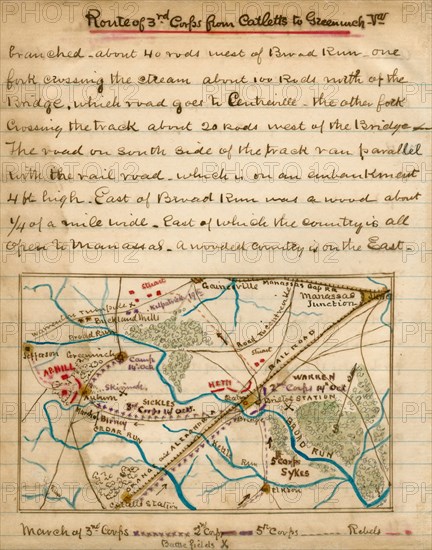 Route of 3rd Corps from Catletts to Greenwich - Va
branched about 40 rods west of Broad Run one
fork crossing the stream about 100 Rods north of the
Bridge, which road goes to Centreville - the other fork
crossing the track about 20 rods west of the Bridge
The road on south side of the track ran parallel
with the rail road which is on an embankment
4 ft high. East of Broad Run was a wood about
1/4 of a mile wide - East of which the country is all
open to Manassas. A wooded country is on the East.
Stuart
Gainesville
Manassas Gap RR
Manassas
Junction
Warrenton Turnpike
Buckland Mills
Kilpatrick
Broad Run
Jefferson
Greenwich
Camp
14 Oct
AP HILL
Skirmish
Auburn
SICKLES
3rd Corps 14 Oct.
Birney
CEDAR RUN
Stuart
RAIL ROAD
HETH
WARREN
2nd Corps 14 Oct
Bristoe STATION
BROAD RUN
ORANGE AND ALEXANDRIA
Kettle Run
5th Corps
SYKES
Catletts Station
March of 3rd Corps 2d Corps 5th Corps Rebels
Battle fields X